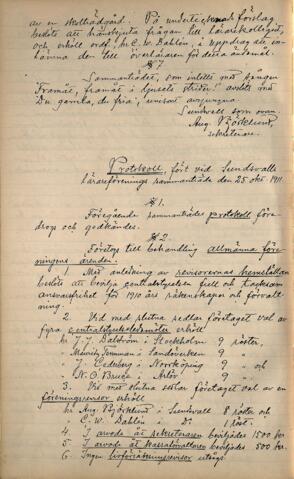 av en skolträdgård. På undertecknads förslag
beslöts att hänskjuta frågan till lärarekollegiet,
och erhöll ordf., hr C. W. Dahlén, i uppdrag att in-
hämta den till överläraren för detta ändamål.
§ 7.
Sammanträdet, som inletts med sången
"Framåt, framåt i ljusets strider" avslöts med
"Du gamla, du fria", unisont avsjungna.
Sundsvall som ovan.
Aug. Björklund,
sekreterare.
Protokoll, fört vid Sundsvalls
lärareförenings sammanträde den 25 okt. 1911.
§ 1.
Föregående sammanträdes protokoll före-
drogs och godkändes.
§ 2.
Företogs till behandling allmänna före-
ningens ärenden.
1. Med anledning av revisorernas hemställan
beslöts att bevilja centralstyrelsen full och tacksam
ansvarsfrihet för 1910 års räkenskaper och förvalt-
ning.
2. Vid med slutna sedlar företaget val av
fyra centralstyrelseledamöter erhöll
hr J. J. Dalström i Stockholm 9 röster,
" Henrik Temman " Sandviken 9 "
" J. Cederberg " Norrköping 9 " och
" N. O. Bruce " Arlöv 9 "
3. Vid med slutna sedlar företaget val av en
föreningsrevisor erhöll
hr Aug. Björklund i Sundsvall 8 röster och
" C. W. Dahlén i d:o 1 röst.
4. I arvode åt sekreteraren beviljades 1500 kr.
5. I arvode åt kassaförvaltaren beviljades 500 kr.
6. Ingen livförsäkringsrevisor utsågs.